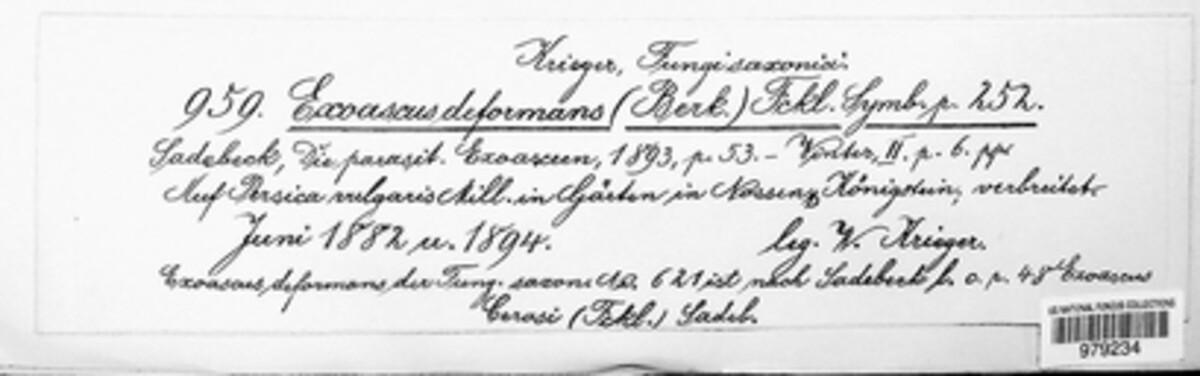 Krieger, Fungi saxonici.
959. Exoascus deformans (Berk.) Fckl. Symb. p. 252.
Sadebeck, Die parasit. Exoasceen, 1893, p. 53. – Winter, II. p. 6.
Auf Persica vulgaris Mill. in Gärten in Nossen, Königstein, verbreitet
Juni 1882 u. 1894. leg. W. Krieger.
Exoascus deformans der Fung. saxon. No. 621 ist nach Sadebeck l. c. p. 48 Exoascus
Cerasi (Fckl.) Sadeb.
US NATIONAL FUNGUS COLLECTIONS
979234